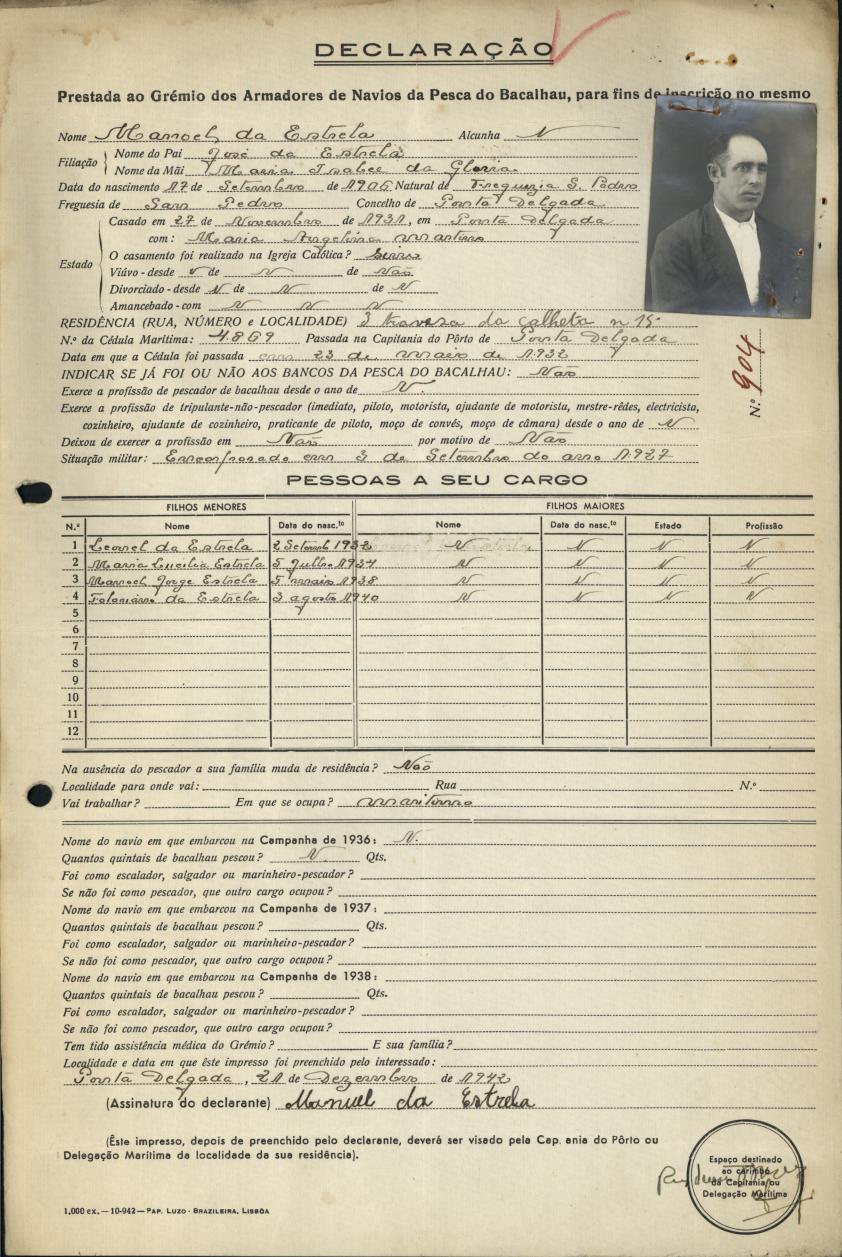 DECLARAÇÃO
Prestada ao Grémio dos Armadores de Navios da Pesca do Bacalhau, para fins de inscrição no mesmo
Nome Manoel da Estrela Alcunha N
Filiação Nome do Pai José da Estrela
Nome da Mãi Maria Isabel da Gloria
Data do nascimento 17 de Setembro de 1906 Natural de Freguezia S. Pedro
Freguesia de Sam Pedro Concelho de Ponta Delgada
Estado Casado em 27 de Novembro de 1931, em Ponta Delgada
com: Maria Angelina
O casamento foi realizado na Igreja Católica?
Viúvo - desde N de N de Não
Divorciado - desde N de N de N
Amancebado - com N N N
RESIDÊNCIA (RUA, NÚMERO e LOCALIDADE) 3 travesa da calheta n 15
N.º da Cédula Marítima: 4.869 Passada na Capitania do Pôrto de Ponta Delgada
Data em que a Cédula foi passada em 23 de maio de 1932
INDICAR SE JÁ FOI OU NÃO AOS BANCOS DA PESCA DO BACALHAU: Não
Exerce a profissão de pescador de bacalhau desde o ano de N.
Exerce a profissão de tripulante-não-pescador (imediato, piloto, motorista, ajudante de motorista, mestre-rêdes, electricista,
cozinheiro, ajudante de cozinheiro, praticante de piloto, moço de convés, moço de câmara) desde o ano de N
Deixou de exercer a profissão em Não por motivo de Não
Situação militar: em 3 de Setembro do ano 1927
N.º 904
PESSOAS A SEU CARGO
FILHOS MENORES FILHOS MAIORES
N.º Nome Data do nasc.to Nome Data do nasc.to Estado Profissão
1 Leonel da Estrela 2 Setemb 1932 N N N N
2 Maria Lucilia Estrela 5 Julho 1934 N N N N
3 Manoel Jorge Estrela 5 maio 1938 N N N N
4 da Estrela 3 agosto 1940 N N N N
5
6
7
8
9
10
11
12
Na ausência do pescador a sua família muda de residência? Não
Localidade para onde vai: Rua N.º
Vai trabalhar? Em que se ocupa? maritimo
Nome do navio em que embarcou na Campanha de 1936: N.
Quantos quintais de bacalhau pescou? N. Qts.
Foi como escalador, salgador ou marinheiro-pescador?
Se não foi como pescador, que outro cargo ocupou?
Nome do navio em que embarcou na Campanha de 1937:
Quantos quintais de bacalhau pescou? Qts.
Foi como escalador, salgador ou marinheiro-pescador?
Se não foi como pescador, que outro cargo ocupou?
Nome do navio em que embarcou na Campanha de 1938:
Quantos quintais de bacalhau pescou? Qts.
Foi como escalador, salgador ou marinheiro-pescador?
Se não foi como pescador, que outro cargo ocupou?
Tem tido assistência médica do Grémio? E sua família?
Localidade e data em que êste impresso foi preenchido pelo interessado:
Ponta Delgada, 21 de Dezembro de 1942
(Assinatura do declarante) Manuel da Estrela
(Êste impresso, depois de preenchido pelo declarante, deverá ser visado pela Cap. ania do Pôrto ou
Delegação Marítima da localidade da sua residência).
Espaço destinado
ao carimbo
da Capitania ou
Delegação Marítima
1,000 ex. — 10-942 — PAP. LUZO-BRAZILEIRA, LISBÔA